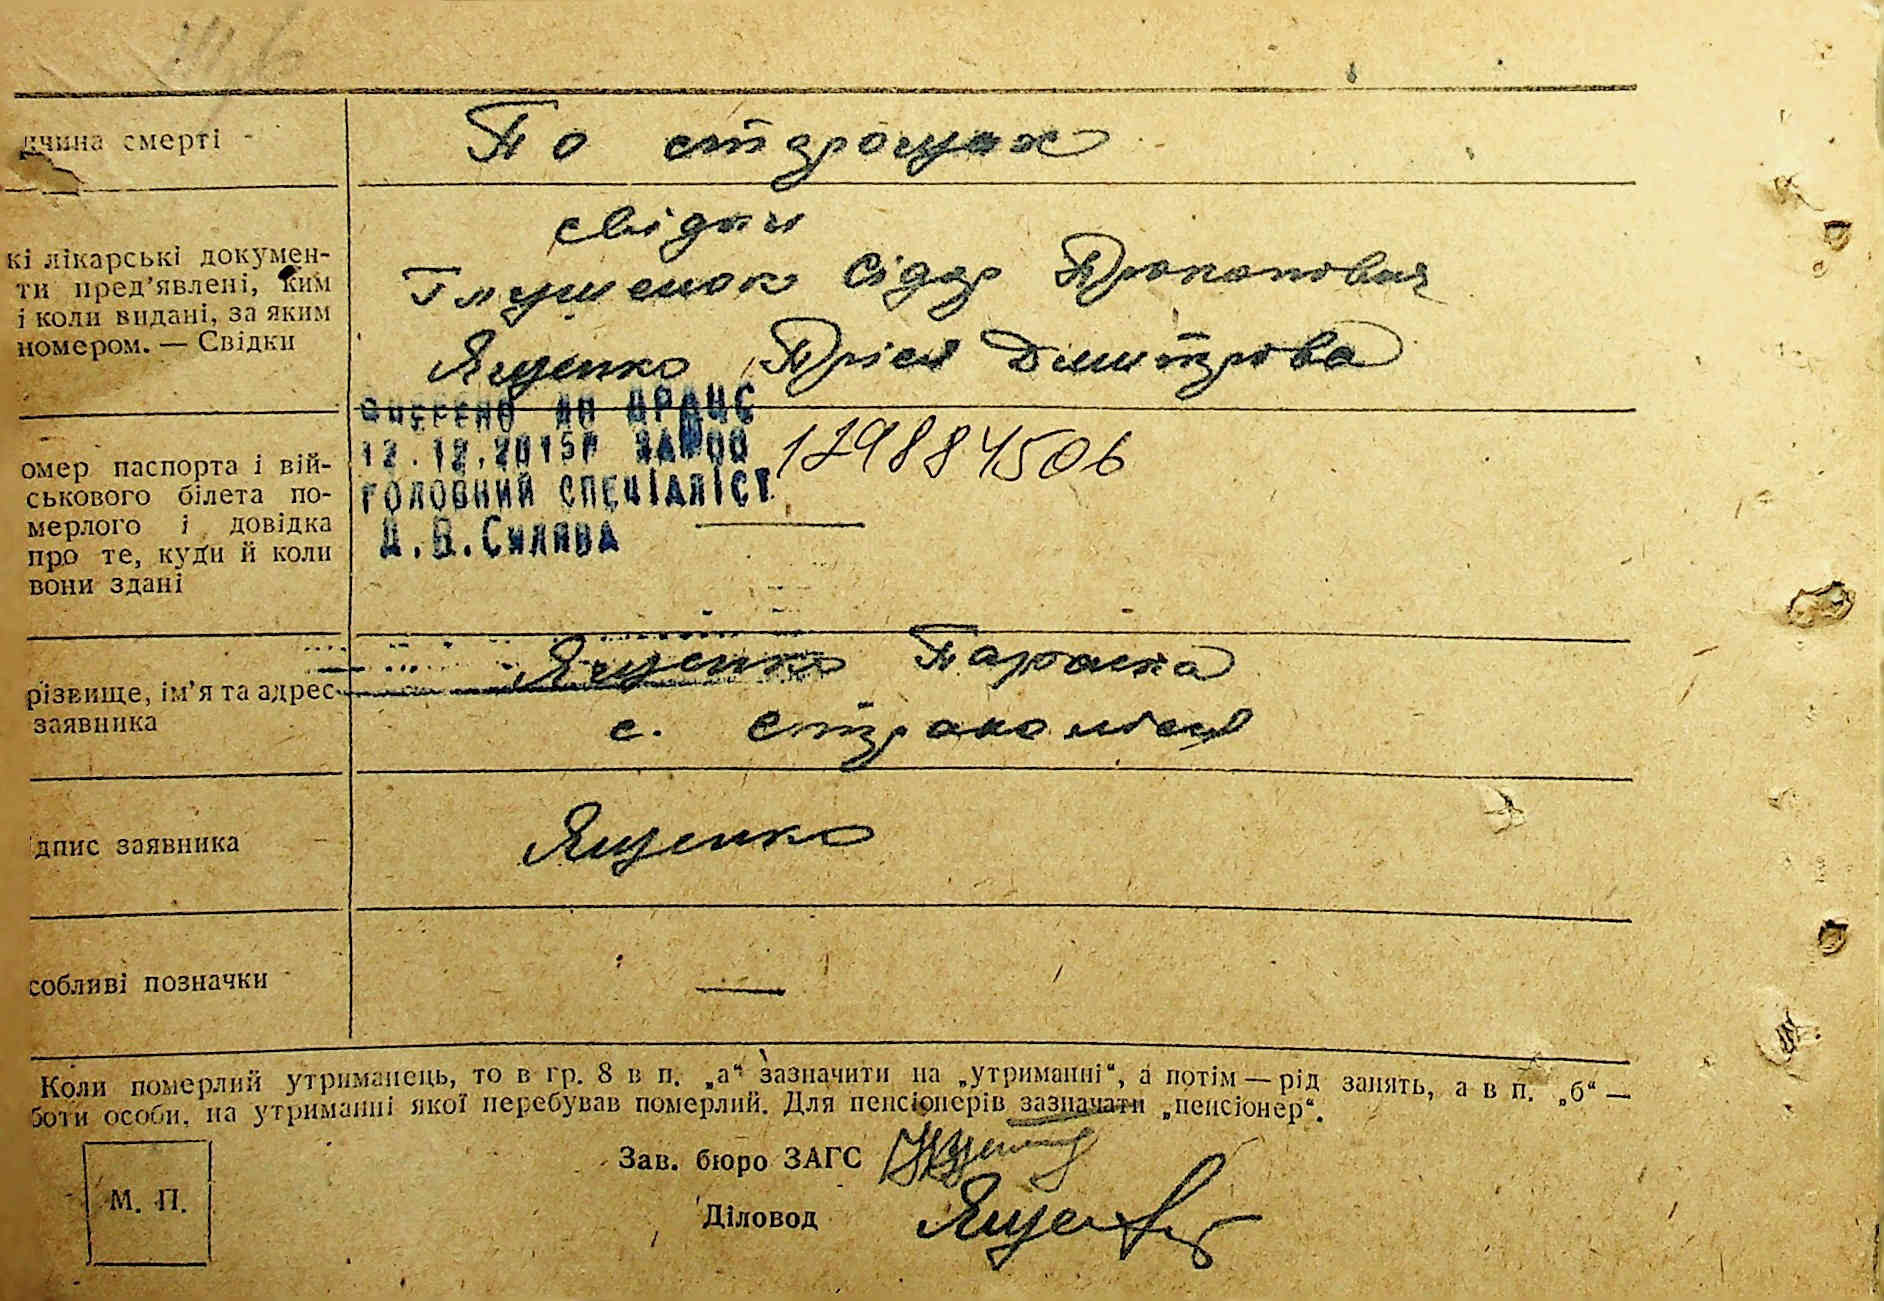 ичина смерті
По старощах
кі лікарські докумен-
ти пред’явлені, ким
і коли видані, за яким
номером. — Свідки
свідки
Глущенок Сідор Прокопович
Ященко Прісія Дмитрова
омер паспорта і вій-
ськового білета по-
мерлого і довідка
про те, куди й коли
вони здані
ВНЕСЕНО ДО ДРАЦС
12.12.2015Р ЗА №00 129884506
ГОЛОВНИЙ СПЕЦІАЛІСТ
Д.В.Силява
різвище, ім’я та адрес
заявника
Ященко Параска
с. Страхолісся
дпис заявника
Ященко
собливі позначки
—
Коли померлий утриманець, то в гр. 8 в п. „а“ зазначити на „утриманні“, а потім — рід занять, а в п. „б“ —
боти особи, на утриманні якої перебував померлий. Для пенсіонерів зазначати „пенсіонер“.
Зав. бюро ЗАГС
М. П.
Діловод